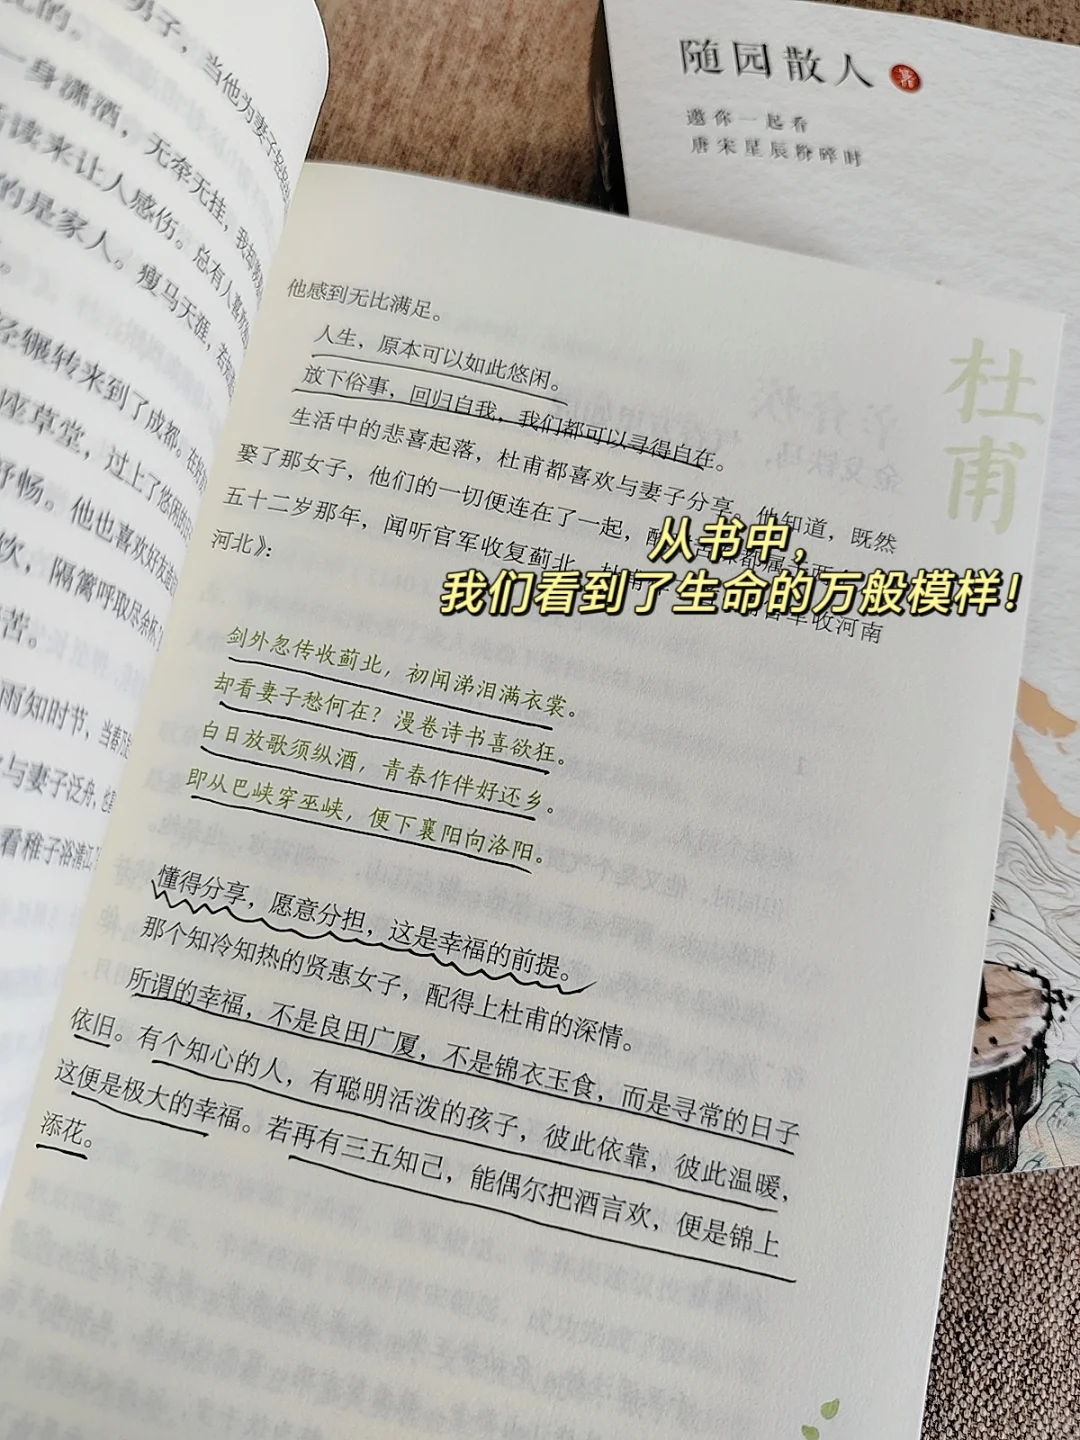 男子，当他为妻子
一身潇洒，无牵无挂，我却
读来让人感伤。总有人喜欢
的是家人。瘦马天涯，若
经辗转来到了成都。在
座草堂，过上了悠闲的
舒畅。他也喜欢好友
饮，隔篱呼取尽余杯
苦。
雨知时节，当春乃
与妻子泛舟，也
看稚子浴清江
随园散人 著
邀你一起看
唐宋星辰粉碎时
杜甫
他感到无比满足。
人生，原本可以如此悠闲。
放下俗事，回归自我，我们都可以寻得自在。
生活中的悲喜起落，杜甫都喜欢与妻子分享。他知道，既然
娶了那女子，他们的一切便连在了一起，
五十二岁那年，闻听官军收复蓟北，杜甫 官军收河南
河北》：
从书中，
我们看到了生命的万般模样！
剑外忽传收蓟北，初闻涕泪满衣裳。
却看妻子愁何在？漫卷诗书喜欲狂。
白日放歌须纵酒，青春作伴好还乡。
即从巴峡穿巫峡，便下襄阳向洛阳。
懂得分享，愿意分担，这是幸福的前提。
那个知冷知热的贤惠女子，配得上杜甫的深情。
所谓的幸福，不是良田广厦，不是锦衣玉食，而是寻常的日子
依旧。有个知心的人，有聪明活泼的孩子，彼此依靠，彼此温暖，
这便是极大的幸福。若再有三五知己，能偶尔把酒言欢，便是锦上
添花。